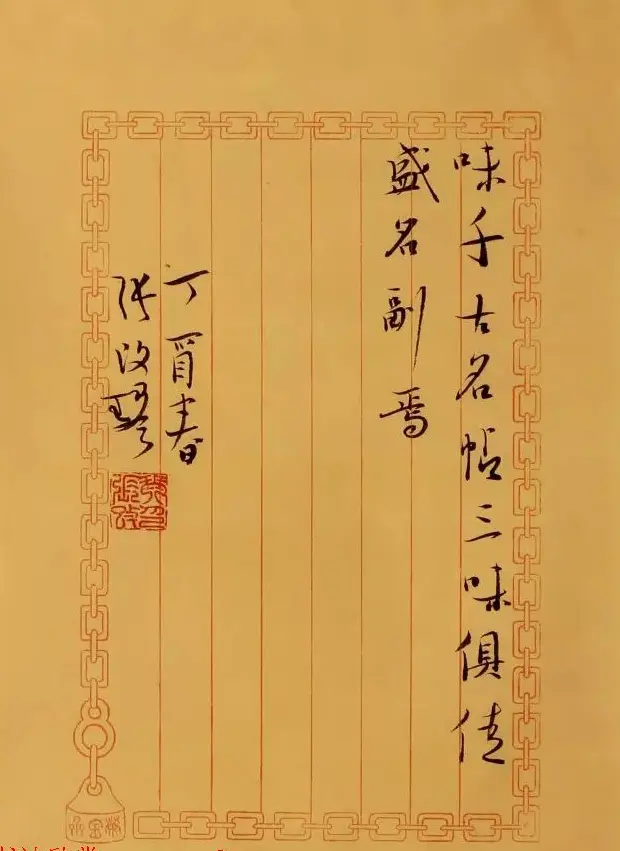 味千古名帖三味俱佳
盛名副焉
丁酉春
张改琴